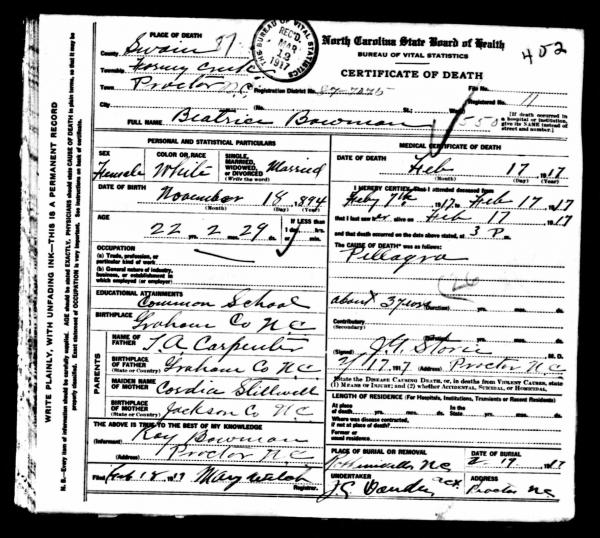 WRITE PLAINLY, WITH UNFADING INK—THIS IS A PERMANENT RECORD
N. B.—Every item of information should be carefully supplied. AGE should be stated EXACTLY. PHYSICIANS should state CAUSE OF DEATH in plain terms, so that it may be properly classified. Exact statement of OCCUPATION is very important. See instructions on back of certificate.
PLACE OF DEATH
County Swain 87
Township Forney Creek
Town Proctor N.C.
City
THE BUREAU OF VITAL STATISTICS
REC'D.
MAR
13
1917
North Carolina State Board of Health
BUREAU OF VITAL STATISTICS
CERTIFICATE OF DEATH
402
File No.
Registration District No. 87-7275
Registered No. 11
(No. St.; Ward)
[If death occurred in a hospital or institution, give its NAME instead of street and number.]
550
FULL NAME Beatrice Bowman
PERSONAL AND STATISTICAL PARTICULARS
SEX Female
COLOR OR RACE White
SINGLE, MARRIED, WIDOWED, or DIVORCED (Write the word) Married
DATE OF BIRTH
November 18, 1894
(Month) (Day) (Year)
AGE
22 yrs. 2 mos. 29 ds.
If LESS than 1 day, hrs. or min.
OCCUPATION
(a) Trade, profession, or particular kind of work
(b) General nature of industry, business, or establishment in which employed (or employer)
EDUCATIONAL ATTAINMENTS
Common School
BIRTHPLACE
Graham Co N C
PARENTS
NAME OF FATHER T. A. Carpenter
BIRTHPLACE OF FATHER (State or Country) Graham Co N C
MAIDEN NAME OF MOTHER Cordia Stillwell
BIRTHPLACE OF MOTHER (State or Country) Jackson Co N C
THE ABOVE IS TRUE TO THE BEST OF MY KNOWLEDGE
(Informant) Ray Bowman
(Address) Proctor N C
Filed Feb 18, 1917 Mary Welch
Registrar.
MEDICAL CERTIFICATE OF DEATH
DATE OF DEATH
Feb 17, 1917
(Month) (Day) (Year)
I HEREBY CERTIFY, That I attended deceased from
Feby 7th, 1917, to Feb 17, 1917
that I last saw her alive on Feb 17, 1917
and that death occurred on the date above stated, at 3 P m.
The CAUSE OF DEATH* was as follows:
Pellagra
(26)
about 3 years (Duration) yrs. mos. ds.
Contributory (Secondary)
(Duration) yrs. mos. ds.
(Signed) M. D.
2/17, 1917 (Address) Proctor N C
*State the DISEASE CAUSING DEATH, or, in deaths from VIOLENT CAUSES, state (1) MEANS OF INJURY; and (2) whether ACCIDENTAL, SUICIDAL, or HOMICIDAL.
LENGTH OF RESIDENCE (For Hospitals, Institutions, Transients or Recent Residents)
At place of death yrs. mos. ds. In the State yrs. mos. ds.
Where was disease contracted, if not at place of death?
Former or usual residence
PLACE OF BURIAL OR REMOVAL
NC
DATE OF BURIAL
2 19, 1917
UNDERTAKER
ADDRESS
Proctor NC